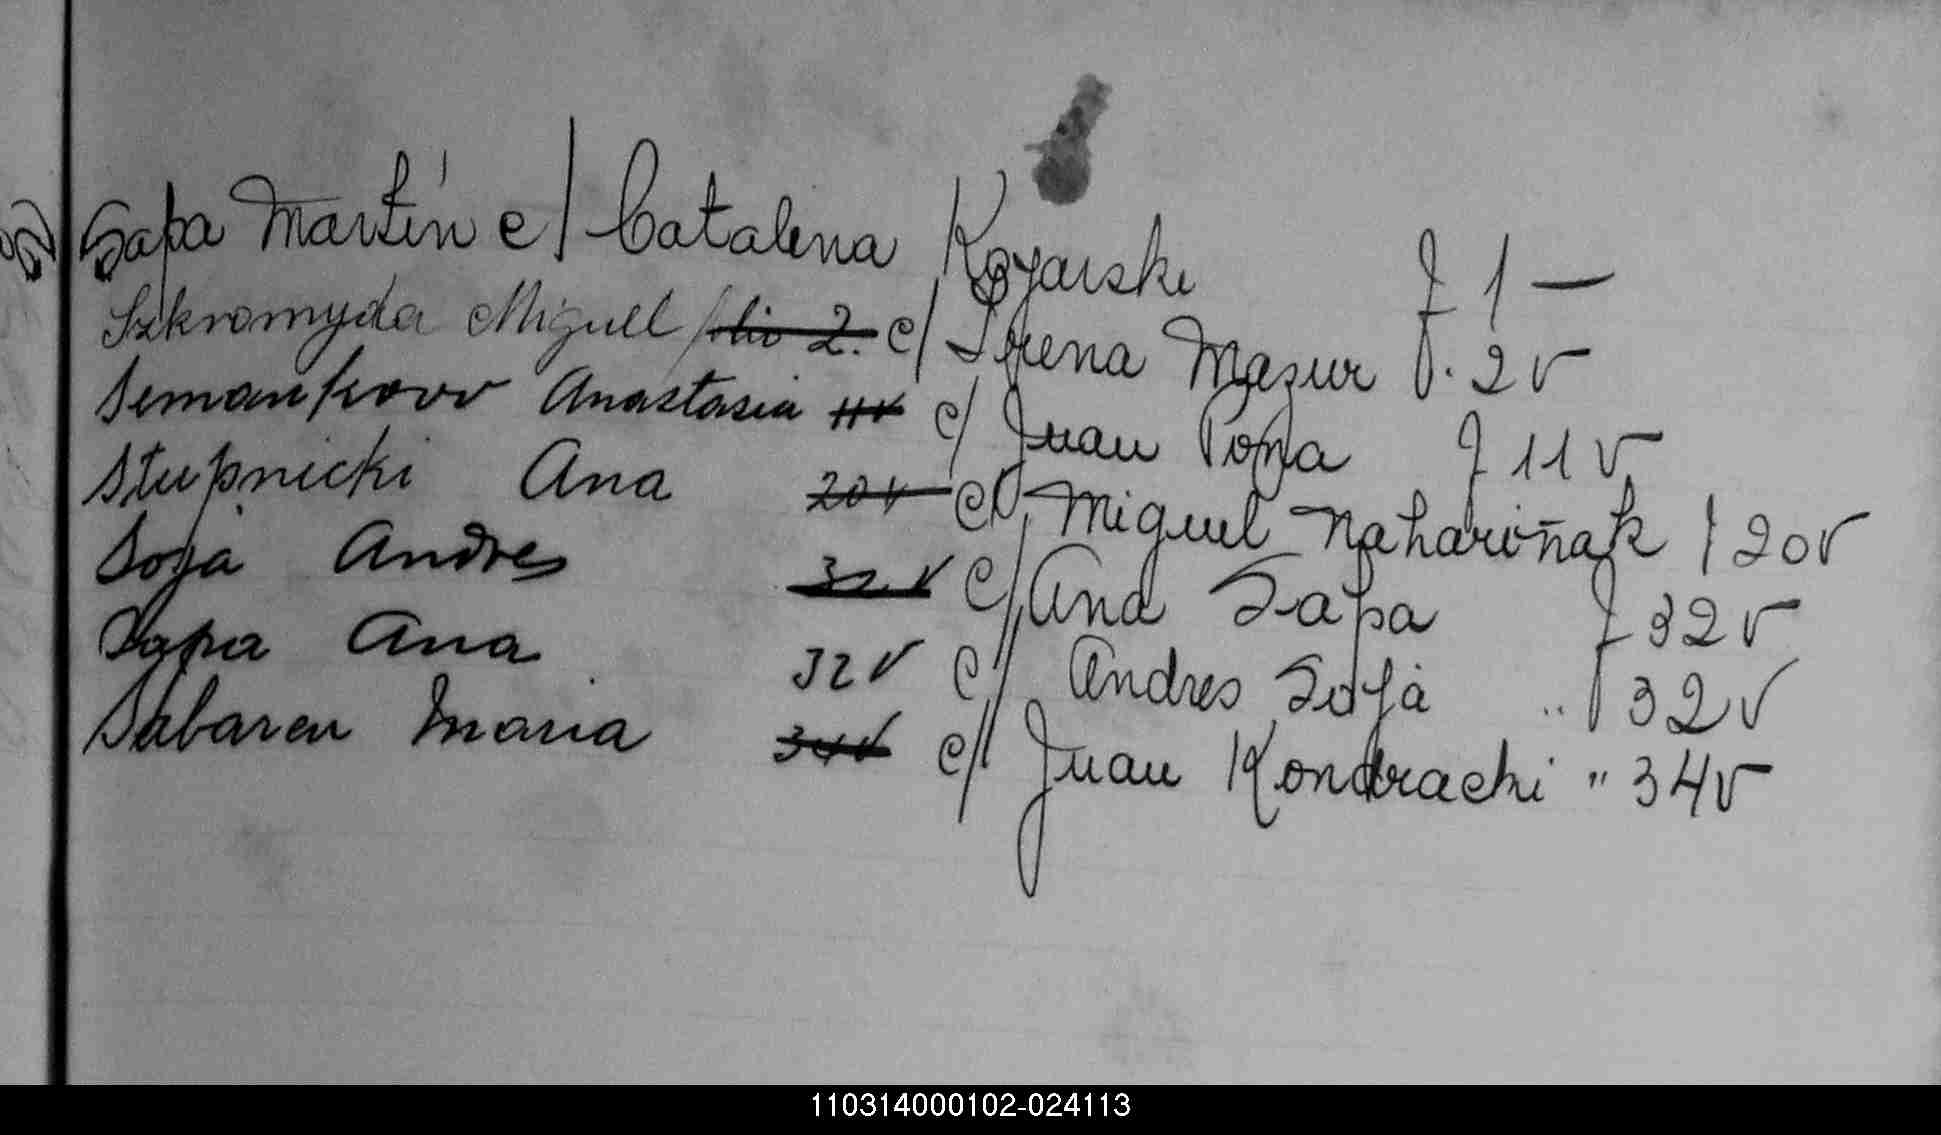 Sapa Martín c/ Catalina Kozarski f 1 —
Szkromyda Miguel folio 2. c/ Irena Mazur f. 2 v
Semankow Anastasia 11v c/ Juan Popa f 11 v
Stupnicki Ana 20 v c/ Miguel f 20v
Soja Andres 32 v c/ Ana Sapa f 32 v
Sapa Ana 32 v c/ Andres Sojà .. f 32 v
Sabaren Maria 34v c/ Juan Kondracki " 34 v
110314000102-024113